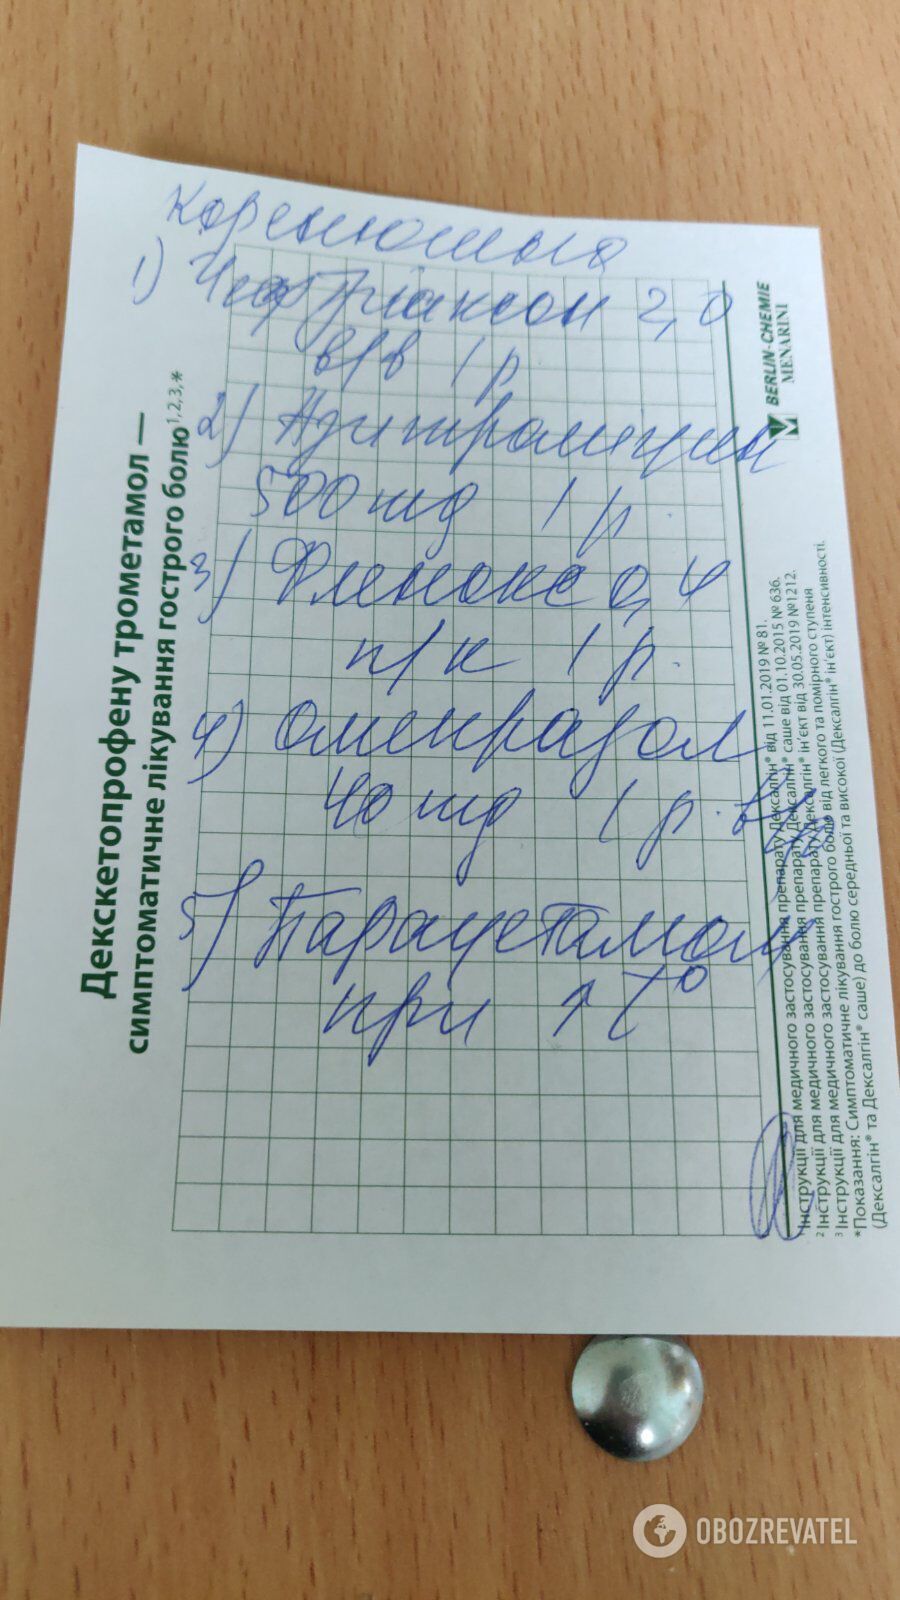 1) Цефтріаксон 2,0
в/в 1 р
2) Азитроміцин
500 mg 1 р.
3) Фленокс 0,4
п/к 1 р.
4) Омепразол
40 mg 1 р.
5) Парацетамол
при ↑ t°
Декскетопрофену трометамол —
симптоматичне лікування гострого болю1,2,3,*
BERLIN-CHEMIE
MENARINI
1 Інструкції для медичного застосування препарату Дексалгін® від 11.01.2019 № 81.
2 Інструкції для медичного застосування препарату Дексалгін® саше від 01.10.2015 № 636.
3 Інструкції для медичного застосування препарату Дексалгін® ін'єкт від 30.05.2019 №1212.
*Показання: Симптоматичне лікування гострого болю від легкого та помірного ступеня
(Дексалгін® та Дексалгін® саше) до болю середньої та високої (Дексалгін® ін'єкт) інтенсивності.
OBOZREVATEL